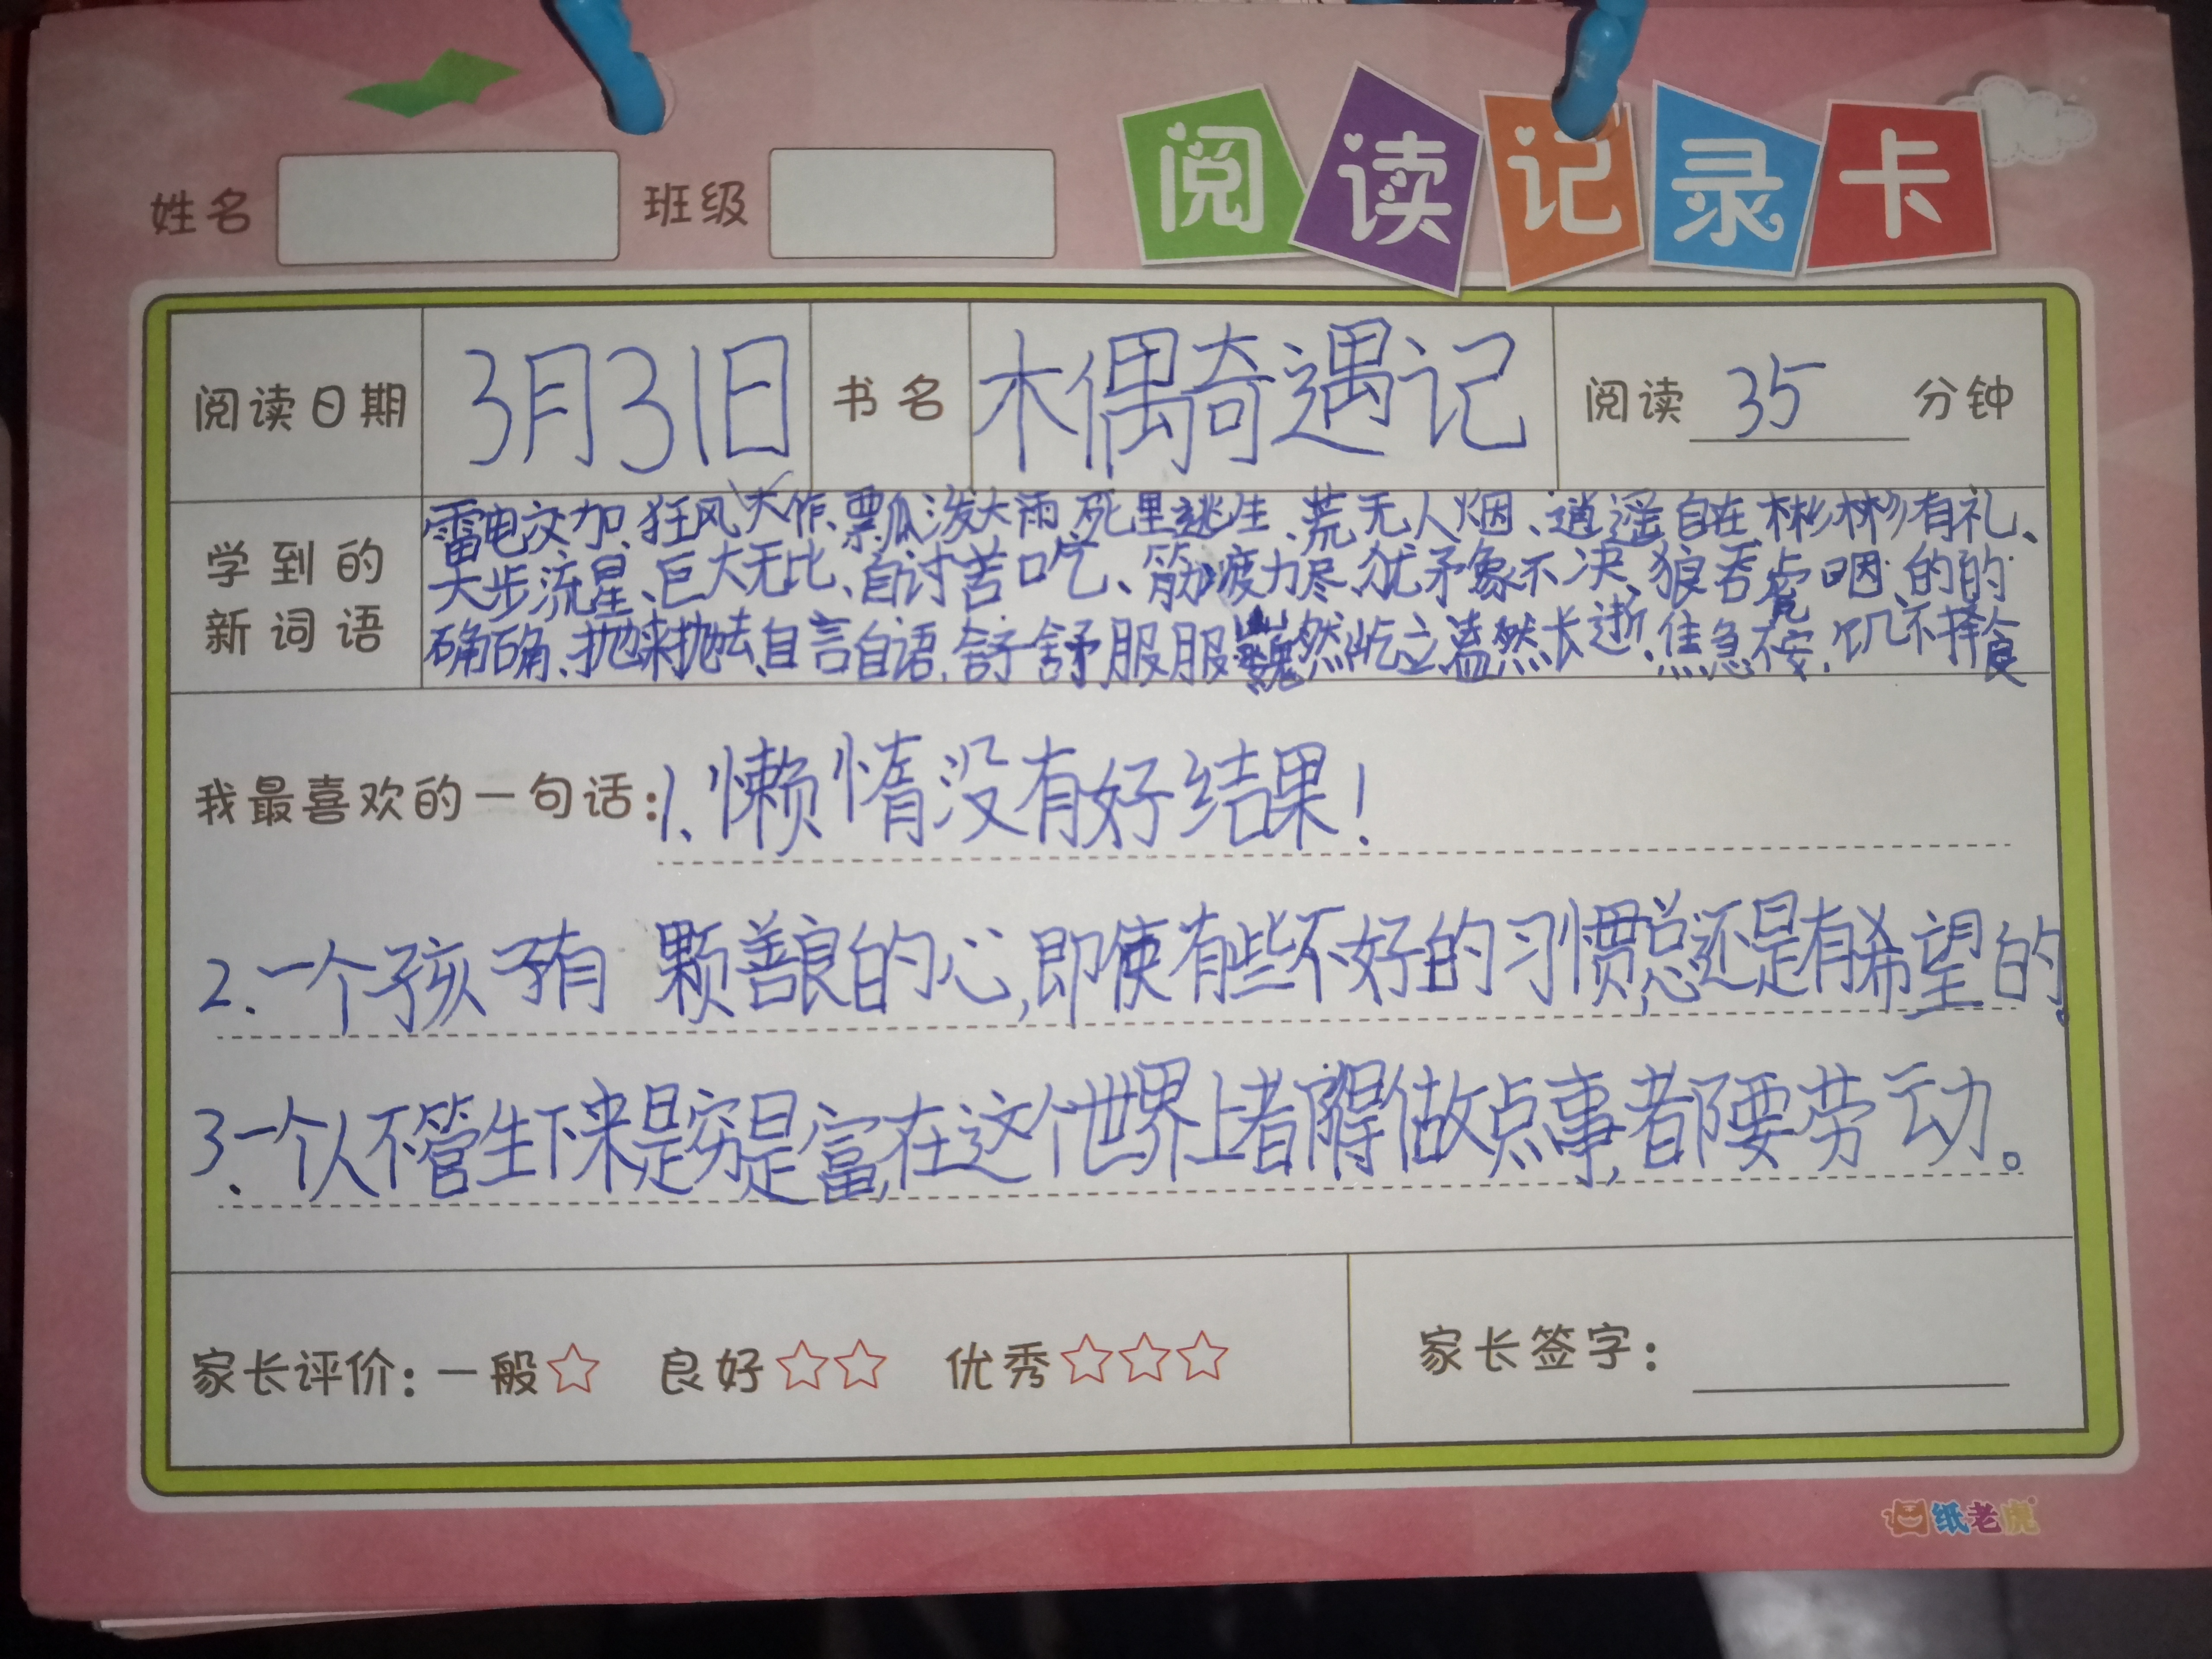 阅读记录卡
姓名 班级
阅读日期 3月31日 书名 木偶奇遇记 阅读 35 分钟
学到的新词语
雷电交加、狂风大作、瓢瓜泼大雨、死里逃生、荒无人烟、逍遥自在、彬彬有礼、
大步流星、巨大无比、自讨苦吃、筋疲力尽、犹矛象不决、狼吞虎咽、的的
确确、抛来抛去、自言自语、舒舒服服、巍然屹立、溘然长逝、焦急不安、饥不择食
我最喜欢的一句话:1、懒惰没有好结果!
2、一个孩子有 颗善良的心,即使有些不好的习惯,总还是有希望的。
3、一个人不管生下来是穷是富,在这个世界上都得做点事,都要劳动。
家长评价:一般☆ 良好☆☆ 优秀☆☆☆ 家长签字:
纸老虎